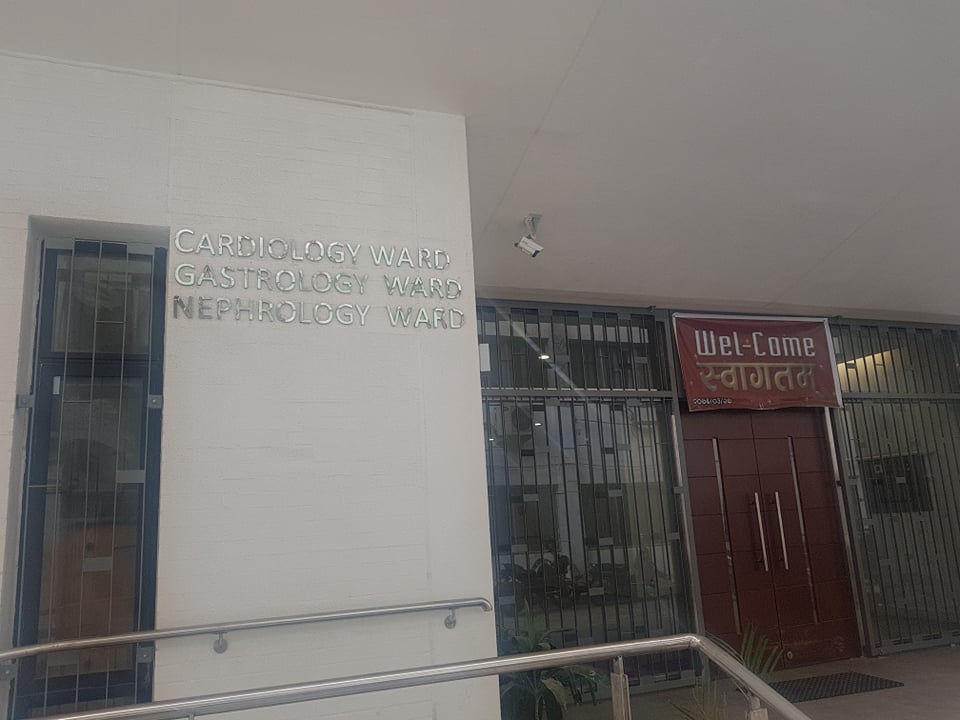 CARDIOLOGY WARD
GASTROLOGY WARD
NEPHROLOGY WARD
Wel-Come
स्वागतम्